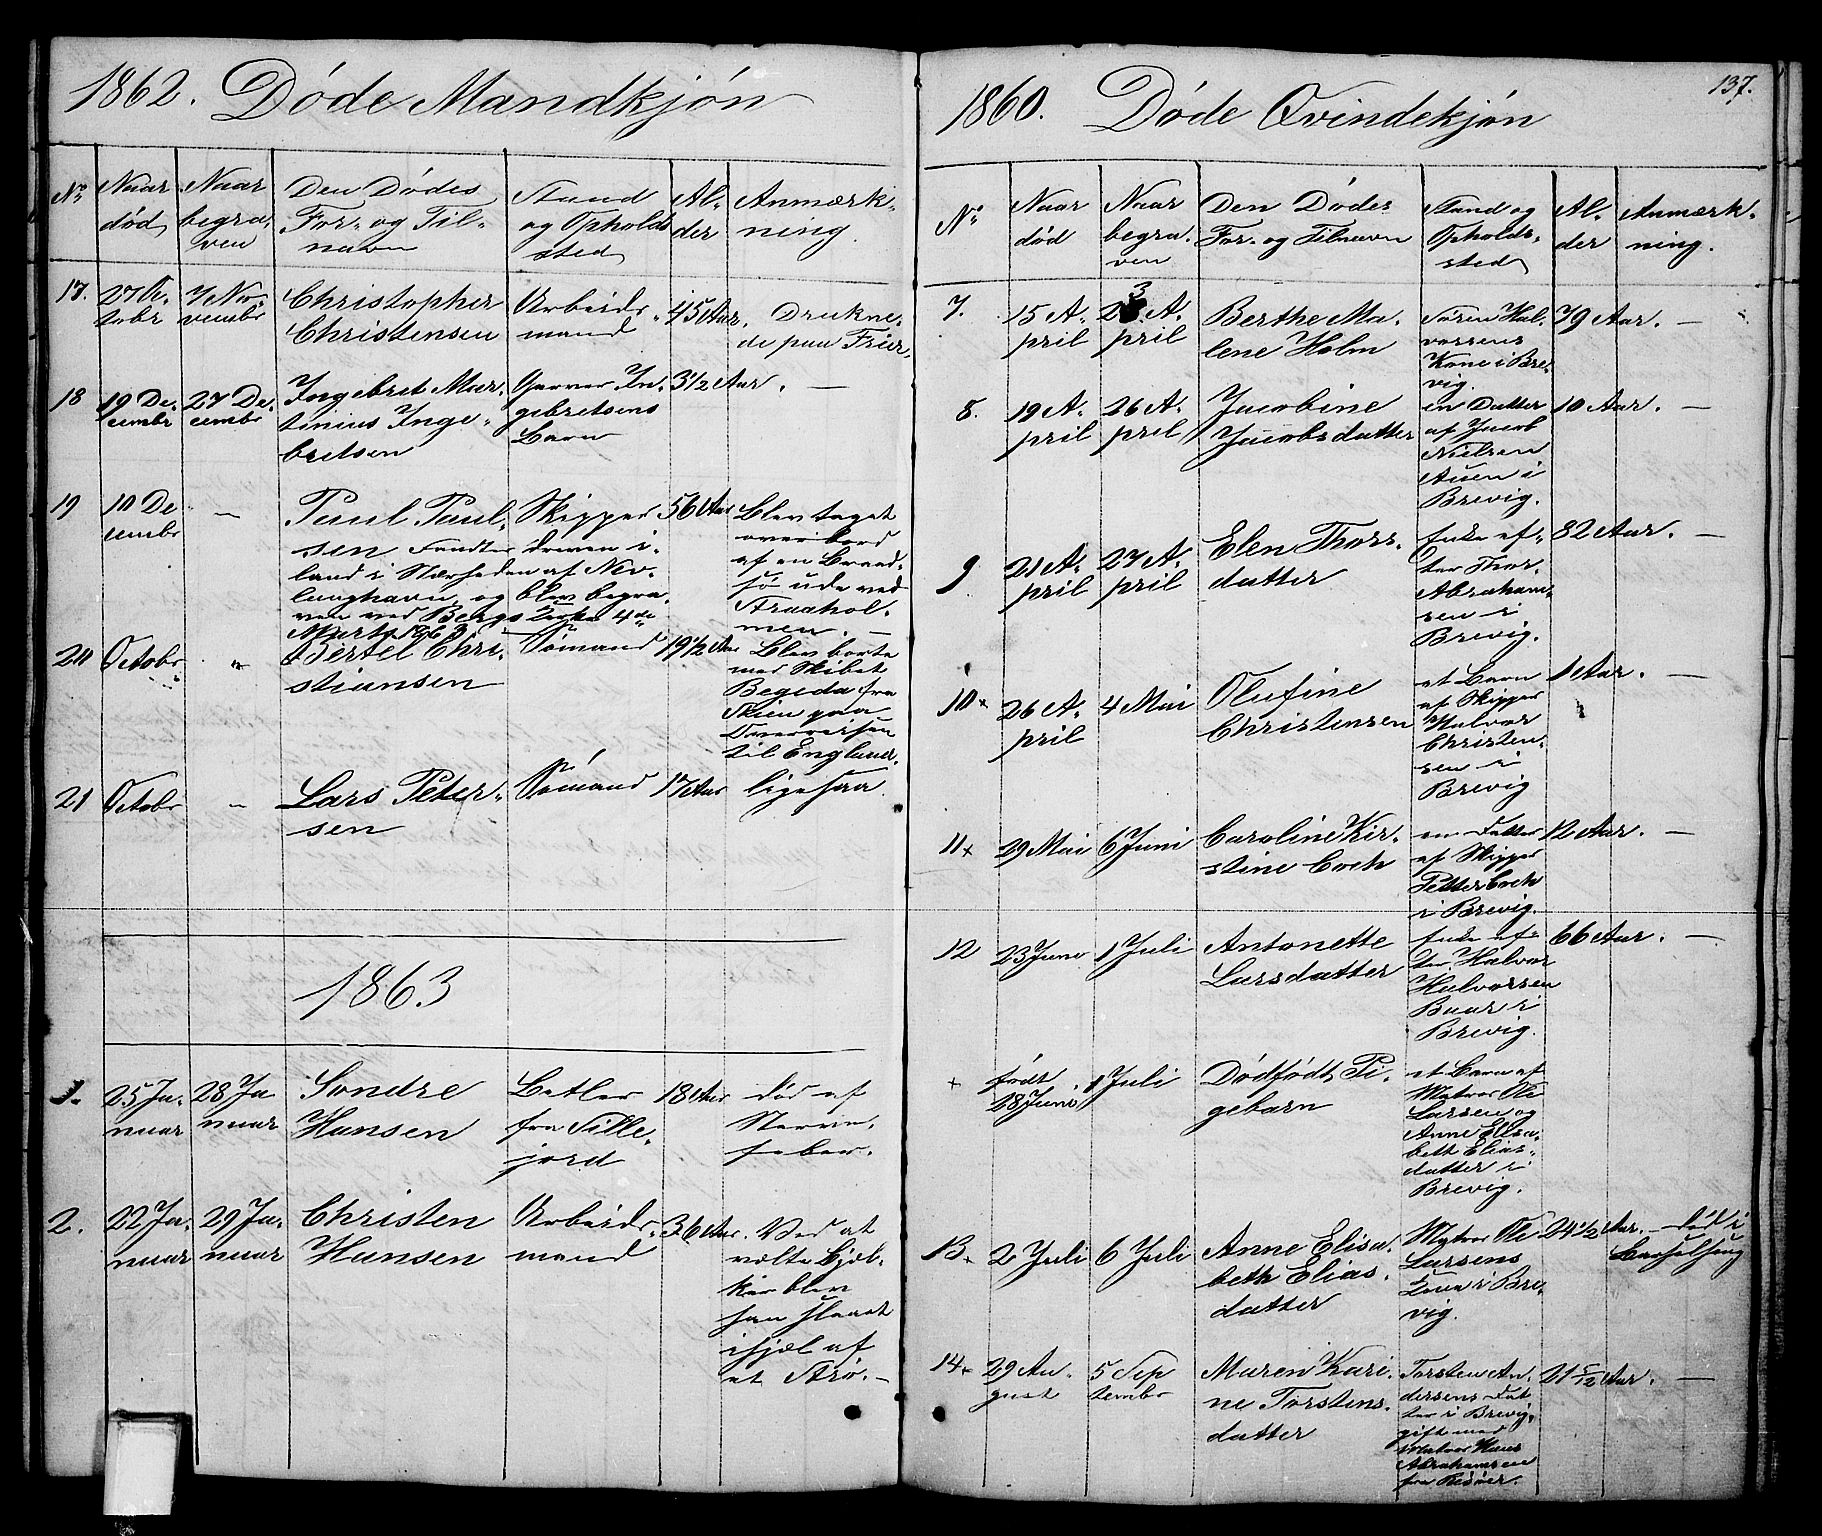 1862. Døde Mandkjøn
No
Naar
død
Naar
begra-
ven
Den Dødes
For- og Til-
navn
Stand
og Opholds
sted
Al-
der
Anmærk-
ning.
17.
27 Oc-
tobr
7 No-
vembr
Christopher
Christensen
Arbeids-
mand
45 Aar.
Drukne-
de paa Frier-
18
19 De-
cembr
27 De-
cembr
Ingebret Mar-
tinius Inge-
bretsen
Garver In-
gebretsens
Barn
3 1/2 Aar. —
19
10 De
cembr
—
Paul Paul-
sen Fandtes dreven i-
land i Nærheden af Nev-
lunghavn, og blev begra-
ven ved Bergs Kirke 4de
Marts 1863.
Skipper
56 Aar
Blev taget
over bord
af en Braad-
sø ude ved
Straahol-
men. —
20
Octobr
"
Bertel Chri-
stiansen
Sømand
19 1/2 Aar
Blev borte
med Skibet
Begeda fra
Skien paa
Overreisen
til England.
21
Octobr
—
Lars Peter-
sen
Sømand
17 Aar
ligesaa.
1863
1.
25 Ja-
nuar
28 Ja
nuar
Sondre
Hansen
Betler
fra Sille-
jord
18 Aar
død af
Nerve-
feber.
2.
22 Ja-
nuar
29 Ja-
nuar
Christen
Hansen
Arbeids-
mand
36 Aar.
Ved at
vælte Bjæl-
ker blev
han slaaet
ihjæl af
et Strø. —
137.
1860. Døde Qvindekjøn
No
Naar
død
Naar
begra-
ven
Den Dødes
For- og Tilnavn
Stand og
Opholds-
sted
Al-
der
Anmærk-
ning.
7.
15 A-
pril
23 A-
pril
Berthe Ma-
lene Holm
Søren Hal-
vorsens
Kone i Bre-
vig.
79 Aar. —
8.
19 A-
pril
26 A-
pril
Jacobine
Jacobsdatter
en Datter
af Jacob
Nielsen
Auen i
Brevig.
10 Aar. —
9
21 A-
pril
27 A-
pril
Elen Thors-
datter
Enke ef-
ter Thor
Abraham-
sen i
Brevig.
82 Aar. —
10 +
26 A-
pril
4 Mai
Olufine
Christensen
et Barn
af Skipper
Halvor
Christen-
sen i
Brevig
1 Aar. —
11 +
29 Mai
6 Juni
Caroline Kir-
stine Coch
en Datter
af Skipper
Petter Coch
i Brevig.
12 Aar. —
12
23 Juni
1 Juli
Antonette
Larsdatter
Enke ef-
ter Halvor
Halvorsen
Baar i
Brevig.
66 Aar. —
+
født
28 Juni
1 Juli
Dødfødt Pi-
gebarn
et Barn af
Matros Ole
Larsen og
Anne Elisa-
beth Elias-
datter i
Brevig.
13 +
2 Juli
6 Juli
Anne Elisa-
beth Elias-
datter
Matros Ole
Larsens
Kone i Bre-
vig.
24 1/2 Aar.
— død i
Barselseng
14 +
29 Au-
gust
5 Sep
tembr
Maren Kari-
ne Torstens-
datter
Torsten An-
dersens Dat
ter i Brevig,
gift med
Matros Hans
Abrahamsen
fra Risøer.
21 5/12 Aar. —